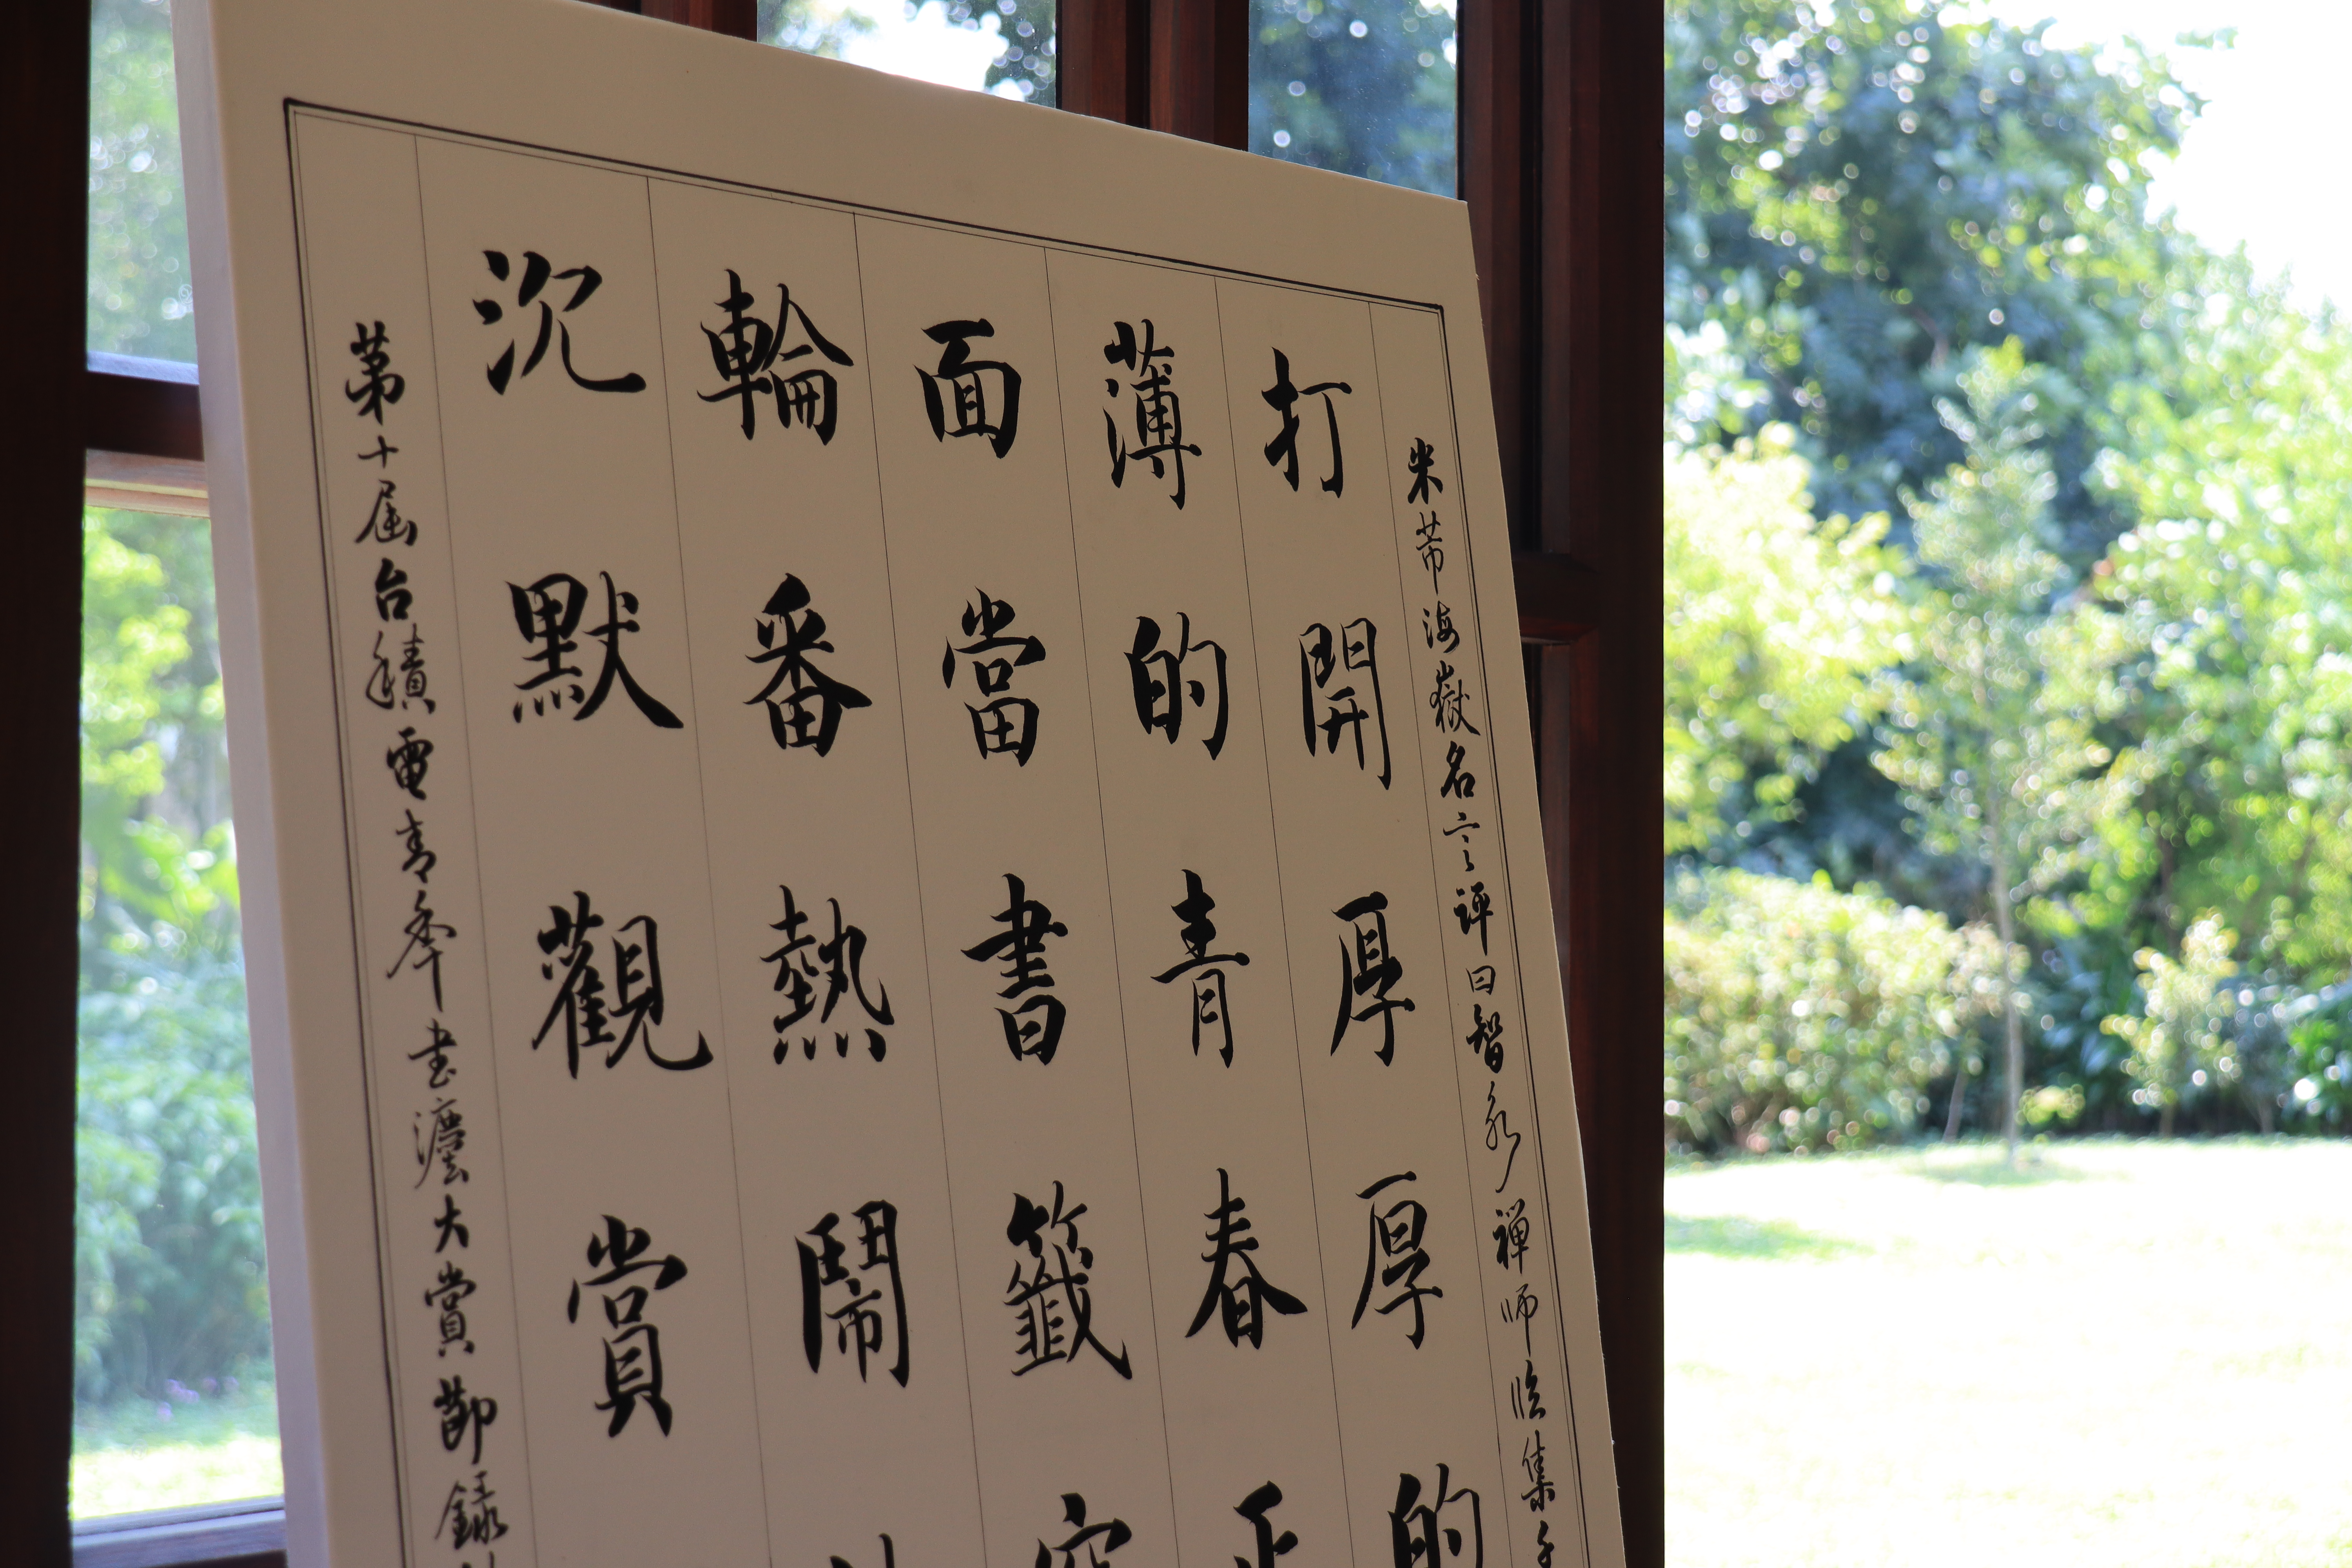 米芾海嶽名言評曰智永禪師臨集千
打開厚厚的
薄的青春
面當書籤
輪番熱鬧
沉默觀賞
第十屆台積電青年書灋大賞節錄